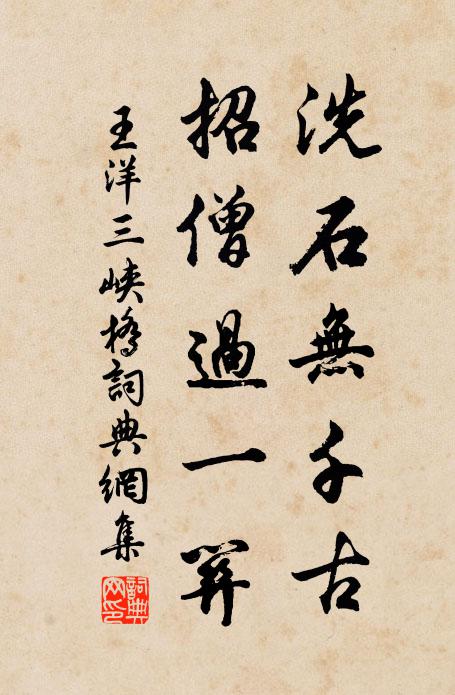 洗石無千古
招僧過一
王洋三峽橋詞典網集
詞典
网印